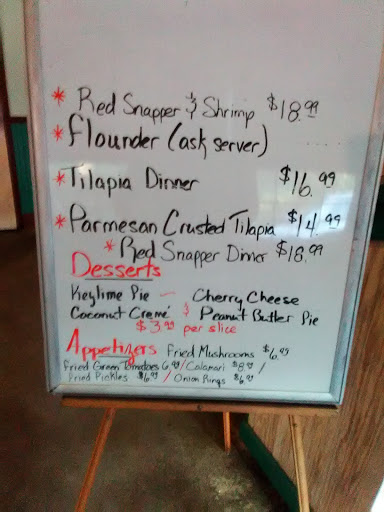 * Red Snapper & Shrimp $18.99
* Flounder (ask server)
* Tilapia Dinner $16.99
* Parmesan Crusted Tilapia $14.99
* Red Snapper Dinner $18.99
Desserts
Keylime Pie — Cherry Cheese
Coconut Creme & Peanut Butter Pie
$3.99 per slice
Appetizers Fried Mushrooms $6.99
Fried Green Tomatoes 6.99 / Calamari $8.99 /
Fried Pickles $6.99 / Onion Rings $6.99